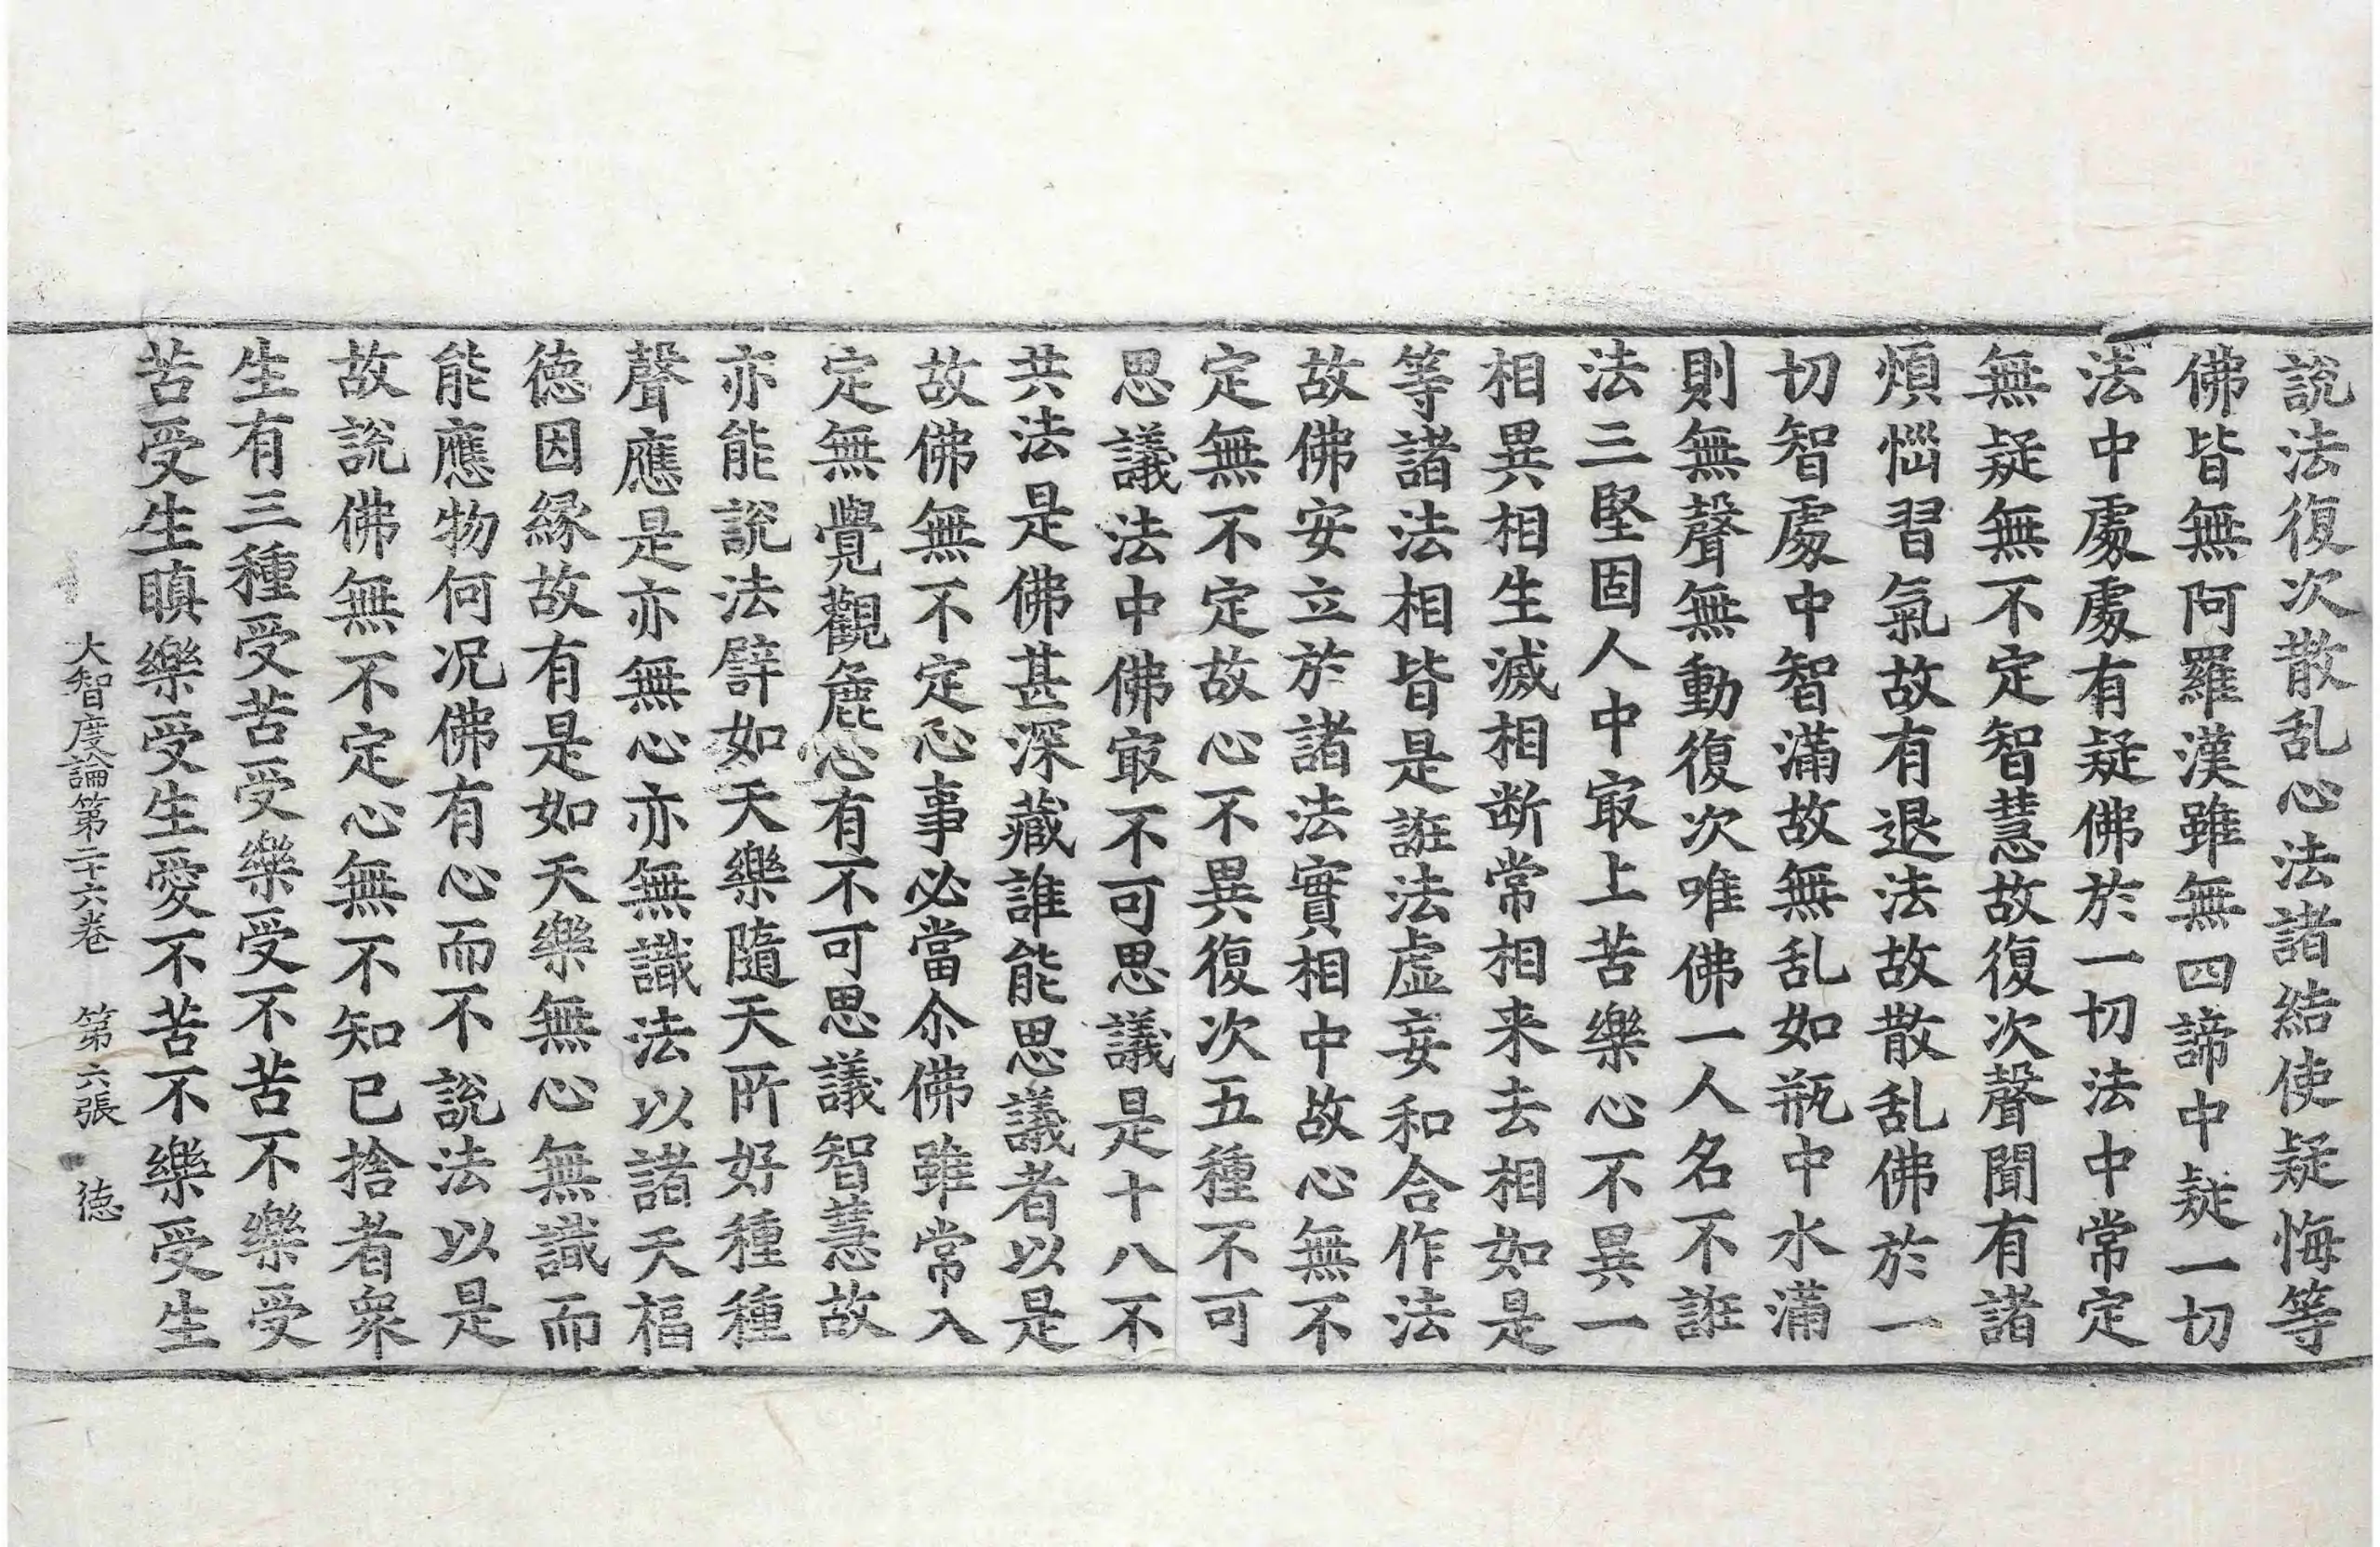 說法復次散乱心法諸結使疑悔等
佛皆無阿羅漢雖無四諦中疑一切
法中處處有疑佛於一切法中常定
無疑無不定智慧故復次聲聞有諸
煩惱習氣故有退法故散乱佛於一
切智處中智滿故無乱如瓶中水滿
則無聲無動復次唯佛一人名不誑
法三堅固人中㝡上苦樂心不異一
相異相生滅相断常相来去相如是
等諸法相皆是誑法虛妄和合作法
故佛安立於諸法實相中故心無不
定無不定故心不異復次五種不可
思議法中佛㝡不可思議是十八不
共法是佛甚深藏誰能思議者以是
故佛無不定心事必當尒佛雖常入
定無覺觀麁心有不可思議智慧故
亦能說法譬如天樂隨天所好種種
聲應是亦無心亦無識法以諸天福
徳因緣故有是如天樂無心無識而
能應物何况佛有心而不說法以是
故說佛無不定心無不知已捨者衆
生有三種受苦受樂受不苦不樂受
苦受生瞋樂受生愛不苦不樂受生
大智度論第二十六卷 第六張 徳